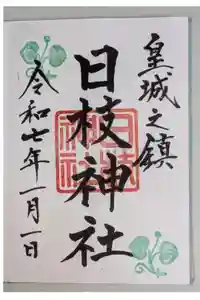 皇城之鎮
日枝神社
令和七年一月一日
日枝神社